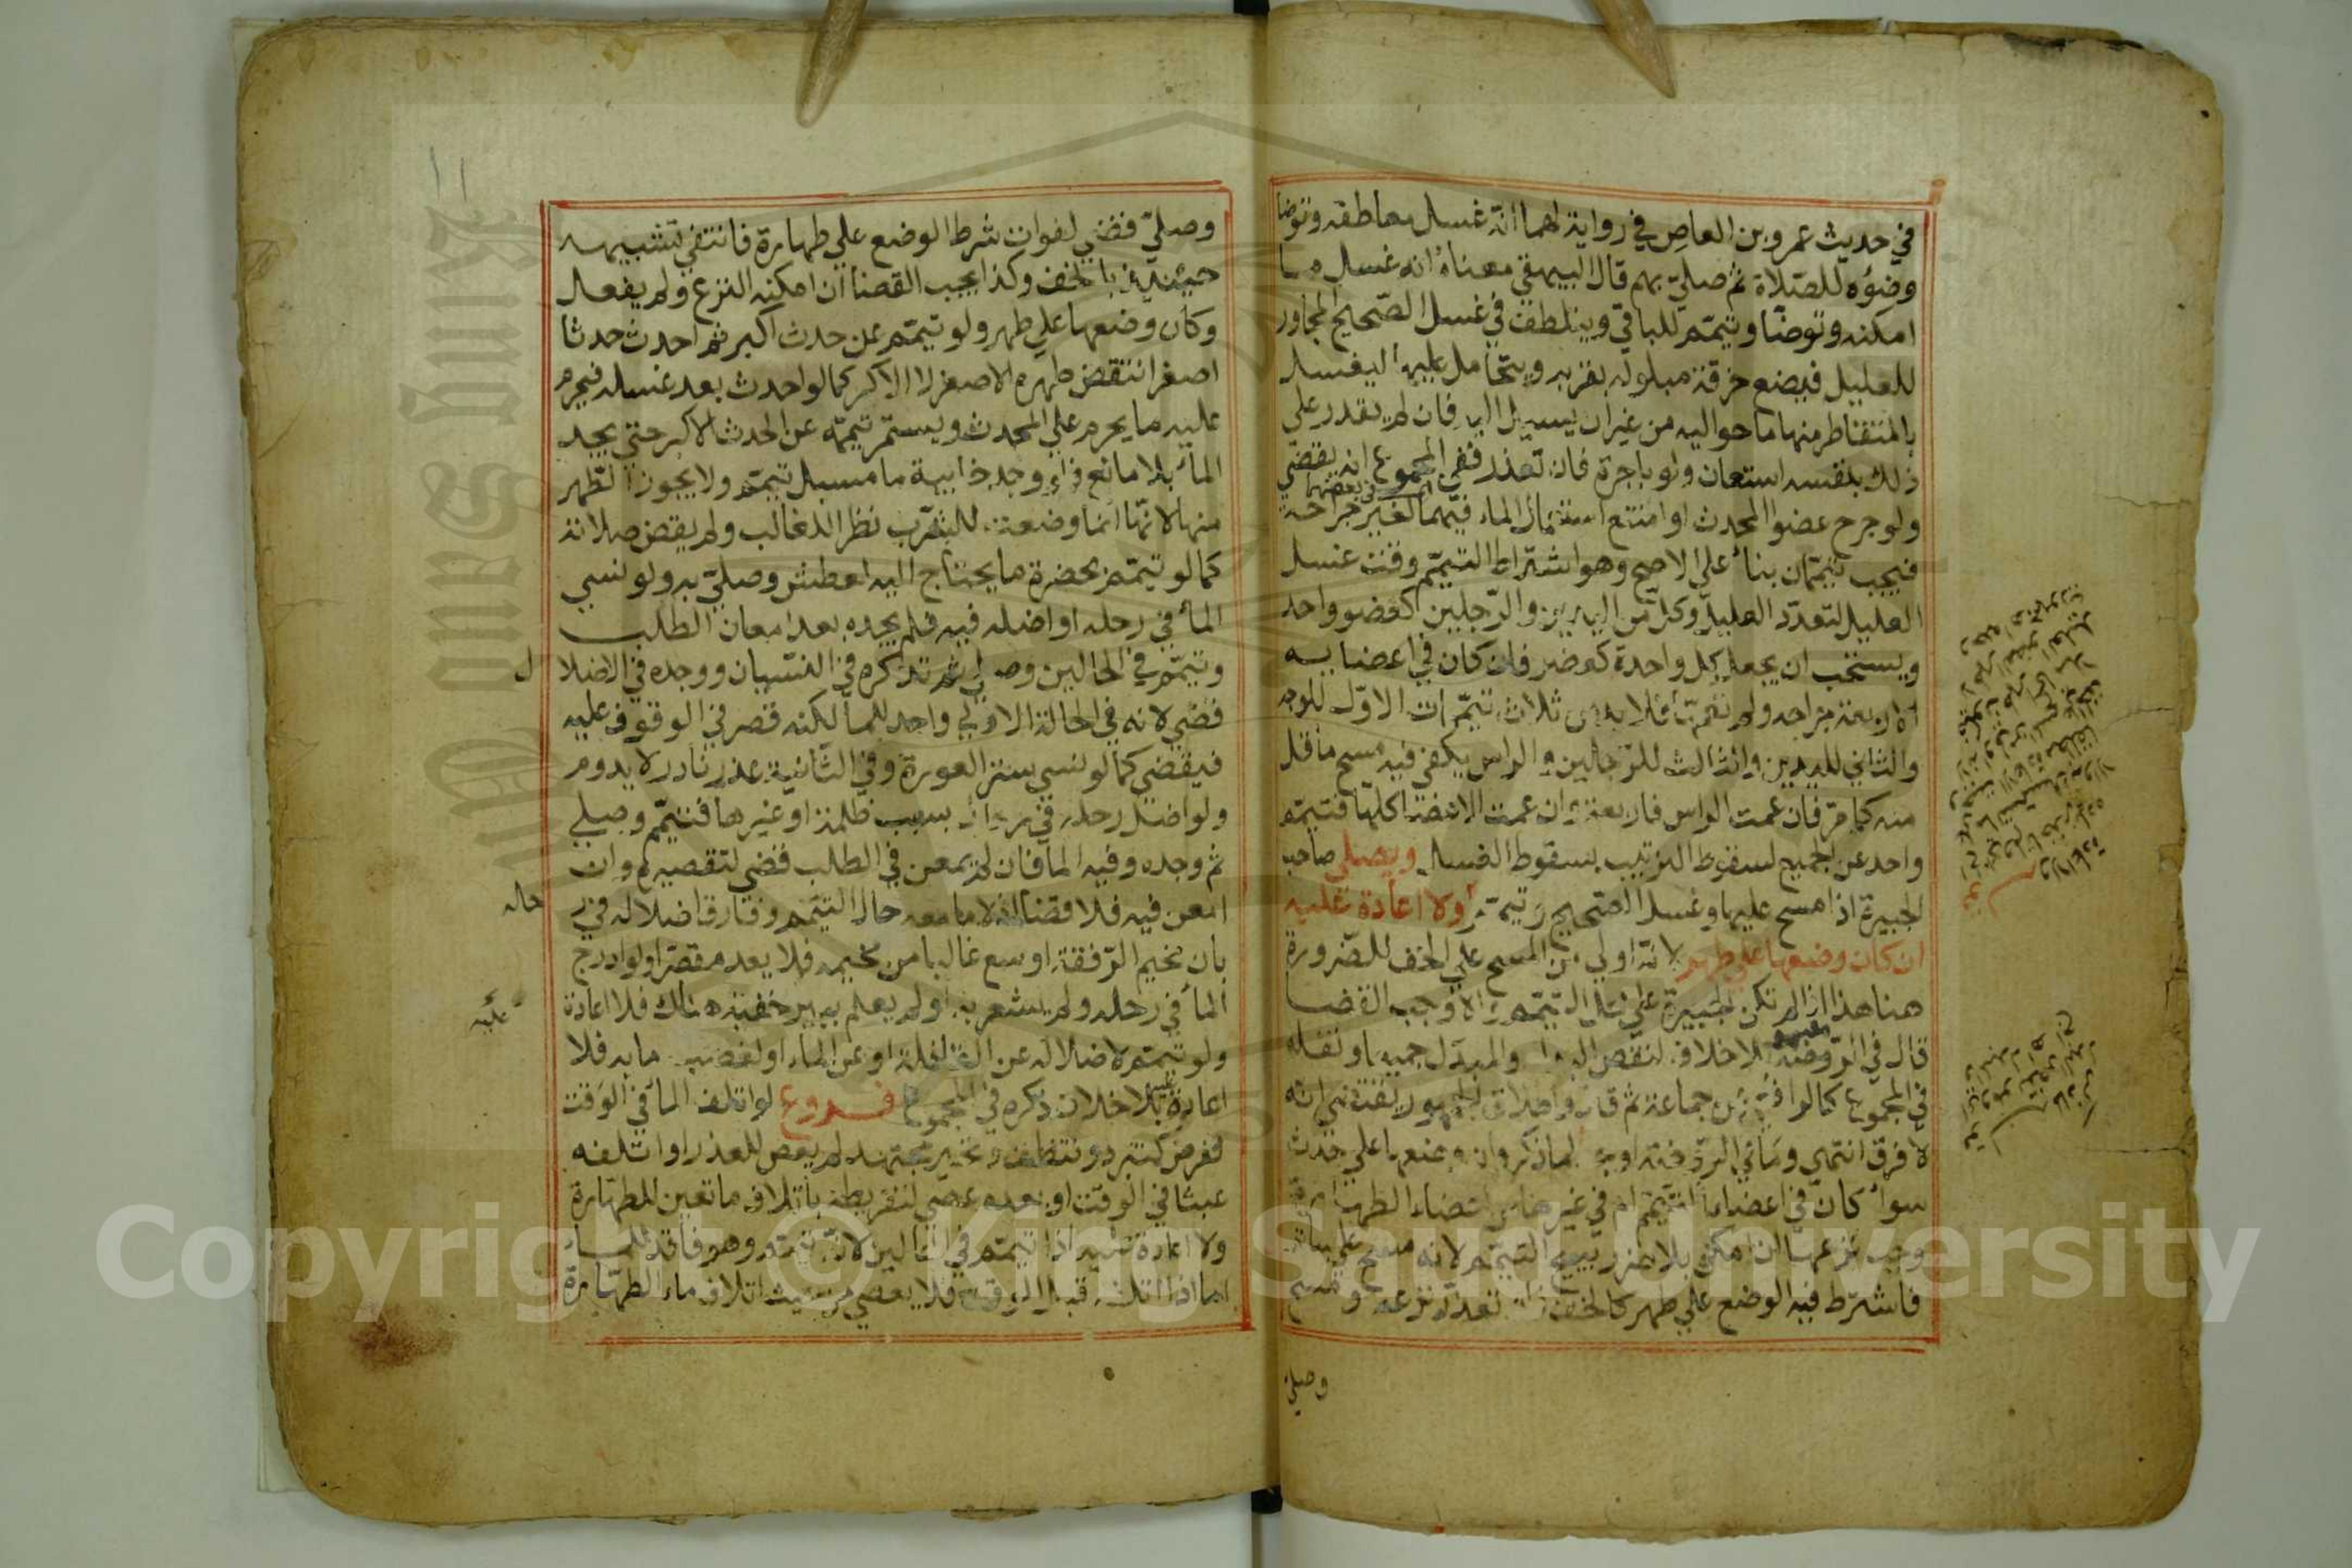 في حديث عمرو بن العاص في رواية لهما أنه غسل معاطفه وتوضا
وضوءه للصلاة ثم صلي بهم قال البيهقي معناه انه غسل ما
امكنه وتوضا وتيمم للباقي ويتلطف في غسل الصحيح المجاور
للعليل فيضع خرقة مبلولة بقربه ويتحامل عليها ليغسل
بالمتقاطر منها ما حواليه من غير ان يسيل اليه فان لم يقدر علي
ذلك بنفسه استعان ولو باجرة فان تعذر ففي المجموع انه يقضي
ولو جرح عضوا المحدث او امتنع استعمال الماء فيهما لغير جراحة
فيجب تيممان بناء علي الاصح وهو اشتراط التيمم وقت غسل
العليل لتعدد العليل وكل من اليدين والرجلين كعضو واحد
ويستحب ان يجعل كل واحدة كعضو فان كان في اعضايه
الاربعة جراحة ولم تعمها فلا بد من ثلاث تيممات الاول للوجه
والثاني لليدين والثالث للرجلين والراس يكفي فيه مسح ما قل
منه كما مر فان عمت الراس فاربعة وان عمت الاعضا كلها فتيمم
واحد عن الجميع لسقوط الترتيب بسقوط الغسل ويصلي صاحب
الجبيرة اذا مسح عليها وغسل الصحيح وتيمم ولا اعادة عليه
ان كان وضعها علي طهر لانه اولي من المسح علي الخف للضرورة
هنا هذا اذا لم تكن الجبيرة علي محل التيمم والا وجب القضا
قال في الروضة بلا خلاف لنقص البدل والمبدل جميعا ونقله
في المجموع كالرافعي عن جماعة ثم قال واطلاق الجمهور يقتضي انه
لا فرق انتهي وما في الروضة اوجه لما ذكر وان وضعها علي حدث
سوا كان في اعضا التيمم ام في غيرها من اعضاء الطهارة
وجب نزعها ان امكن بلا ضرر يبيح التيمم لانه مسح علي ساتر
فاشترط فيه الوضع علي طهر كالخف فان تعذر نزعه ومسح
وصلي
وصلي قضي لفوات شرط الوضع علي طهارة فانتفي تشبيهه
حينئذ بالخف وكذا يجب القضا ان امكنه النزع ولم يفعل
وكان وضعها علي طهر ولو تيمم عن حدث اكبر ثم احدث حدثا
اصغر انتقض طهره الاصغر لا الاكبر كما لو احدث بعد غسله فيحرم
عليه ما يحرم علي المحدث ويستمر تيممه عن الحدث الاكبر حتي يجد
الماء بلا مانع فلو وجد خابية ما مسبل تيمم ولا يجوز الطهر
منها لانها انما وضعت للشرب نظرا للغالب ولم يقض صلاته
كما لو تيمم بحضرة ما يحتاج اليه لعطش وصلي به ولو نسي
الماء في رحله او اضله فيه فلم يجده بعد امعان الطلب
وتيمم في الحالين وصلي ثم تذكره في النسيان ووجده في الاضلا
ل
قضي لانه في الحالة الاولي واجد للماء لكنه قصر في الوقوف عليه
فيقضي كما لو نسي ستر العورة وفي الثانية عذر نادر لا يدوم
ولو اضل رحله في رحال بسبب ظلمة او غيرها فتيمم وصلي
ثم وجده وفيه الماء فان لم يمعن في الطلب قضي لتقصيره وان
امعن فيه فلا قضا اذ لا ما معه حال التيمم وفارق اضلاله في ر
حاله
بان مخيم الرفقة اوسع غالبا من مخيمه فلا يعد مقصرا ولو ادرج
الماء في رحله ولم يشعر به او لم يعلم ببير خفية هناك فلا اعادة
عليه
ولو تيمم لاضلاله عن القافلة او عن الماء او لغصب مايه فلا
اعادة بلا خلاف ذكره في المجموع فروع لو اتلف الماء في الوقت
لغرض كتبرد وتنظف وتحير مجتهد لم يعص للعذر او اتلفه
عبثا في الوقت او بعده عصي لتفريطه باتلاف ما تعين للطهارة
ولا اعادة عليه اذا تيمم في الحالين لانه تيمم وهو فاقد للماء
اما اذا اتلفه قبل الوقت فلا يعصي من حيث اتلاف ماء الطهارة